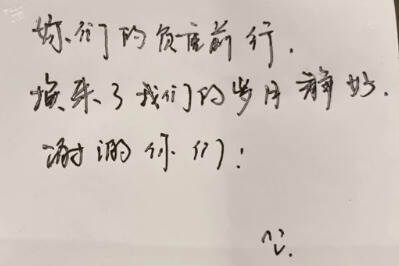 你们的负重前行,
换来了我们的岁月静好.
谢谢你们!